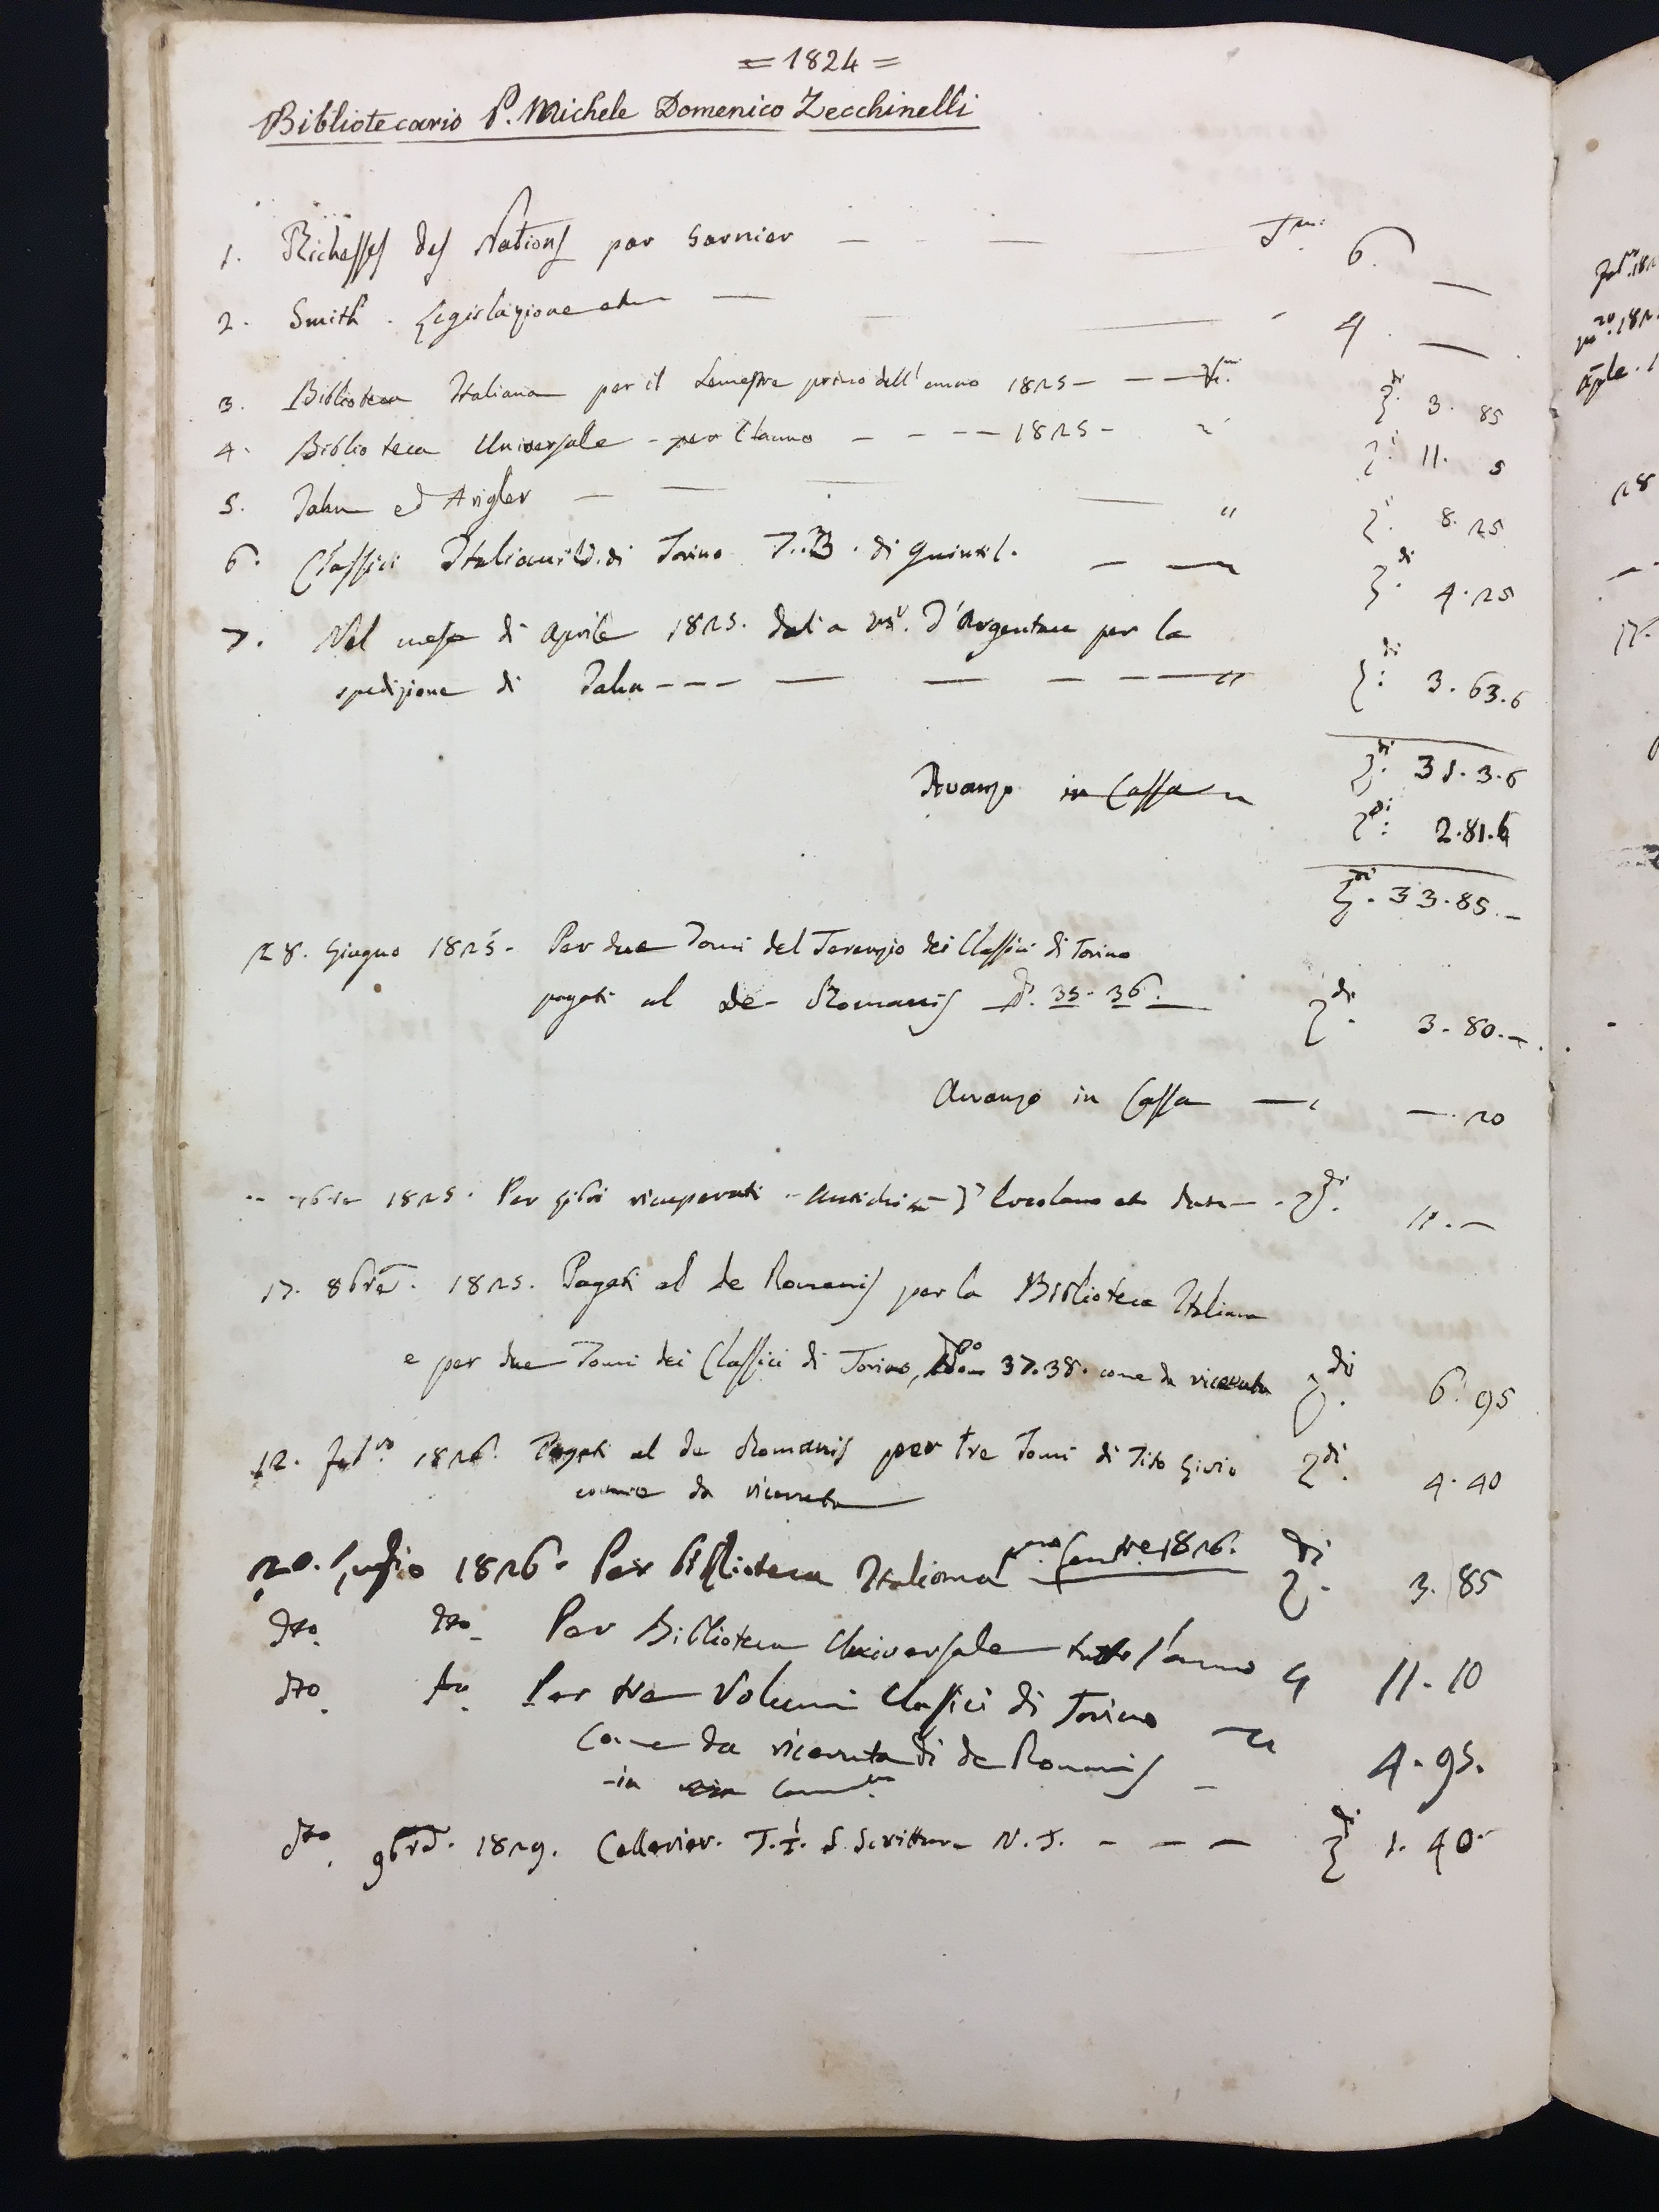 = 1824 =
Bibliotecario P. Michele Domenico Zecchinelli
1. Richesses des Nations par Garnier — — — 6. —
2. Smith. Legislazione — 4. —
3. Biblioteca Italiana per il Semestre primo dell' anno 1825 — — — 3. 85
4. Biblioteca Universale - per l'anno — — — 1825 — 11. 5
5. Jahn ed — — — — " 8. 25
6. Classici Italiani di Torino di Quintil. — — 4. 25
7. Nel mese di Aprile 1825. dati a per la
spedizione di Jahn - - - — — — — " 3. 63. 6
31. 3. 6
Avanzo in Cassa 2. 81. 6
33. 85. —
28. Giugno 1825. Per due Tomi del Terenzio dei Classici di Torino
pagati al de Romanis 35. 36. 3. 80. —
Avanzo in Cassa — — 20
1825. Per libri ricuperati 11. —
17. 8bre. 1825. Pagati al de Romanis per la Biblioteca Italiana
e per due Tomi dei Classici di Torino, 37. 38. come da ricevuta 6. 95
12. 1826. Pagati al de Romanis per tre Tomi di Tito Livio 4. 40
come da ricevuta
20. Luglio 1826. Per Biblioteca Italiana 1826. 3. 85
dto. dto. Per Biblioteca Universale tutto l'anno 11. 10
dto. Per tre Volumi Classici di Torino
Come da ricevuta di de Romanis 4. 95.
in
dto. 9bre. 1829. S. Scrittura — — — 1. 40